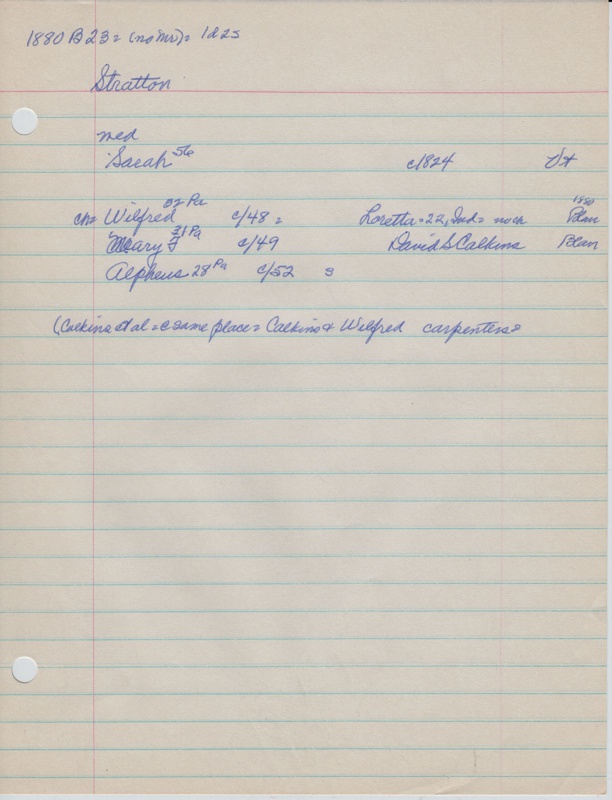 1880 B23 = (no Mr) = 1d 2s
Stratton
med
Sarah 56 c/1824 Vt
ch = Wilfred 32 Pa c/48 = Loretta = 22, Ind = no ch 1880 Blan
Mary F 31 Pa c/49 David S Calkins Blan
Alpheus 28 Pa c/52 s
(Calkins et al = @ same place = Calkins & Wilfred carpenters =